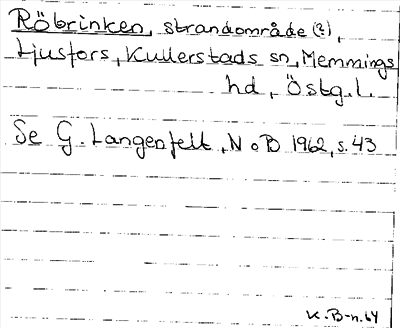 Röbrinken, strandområde (?),
Ljusfors, Kullerstads sn, Memmings
hd, Östg. l.
Se G. Langenfelt, NoB 1962, s. 43
K. B-n. 64